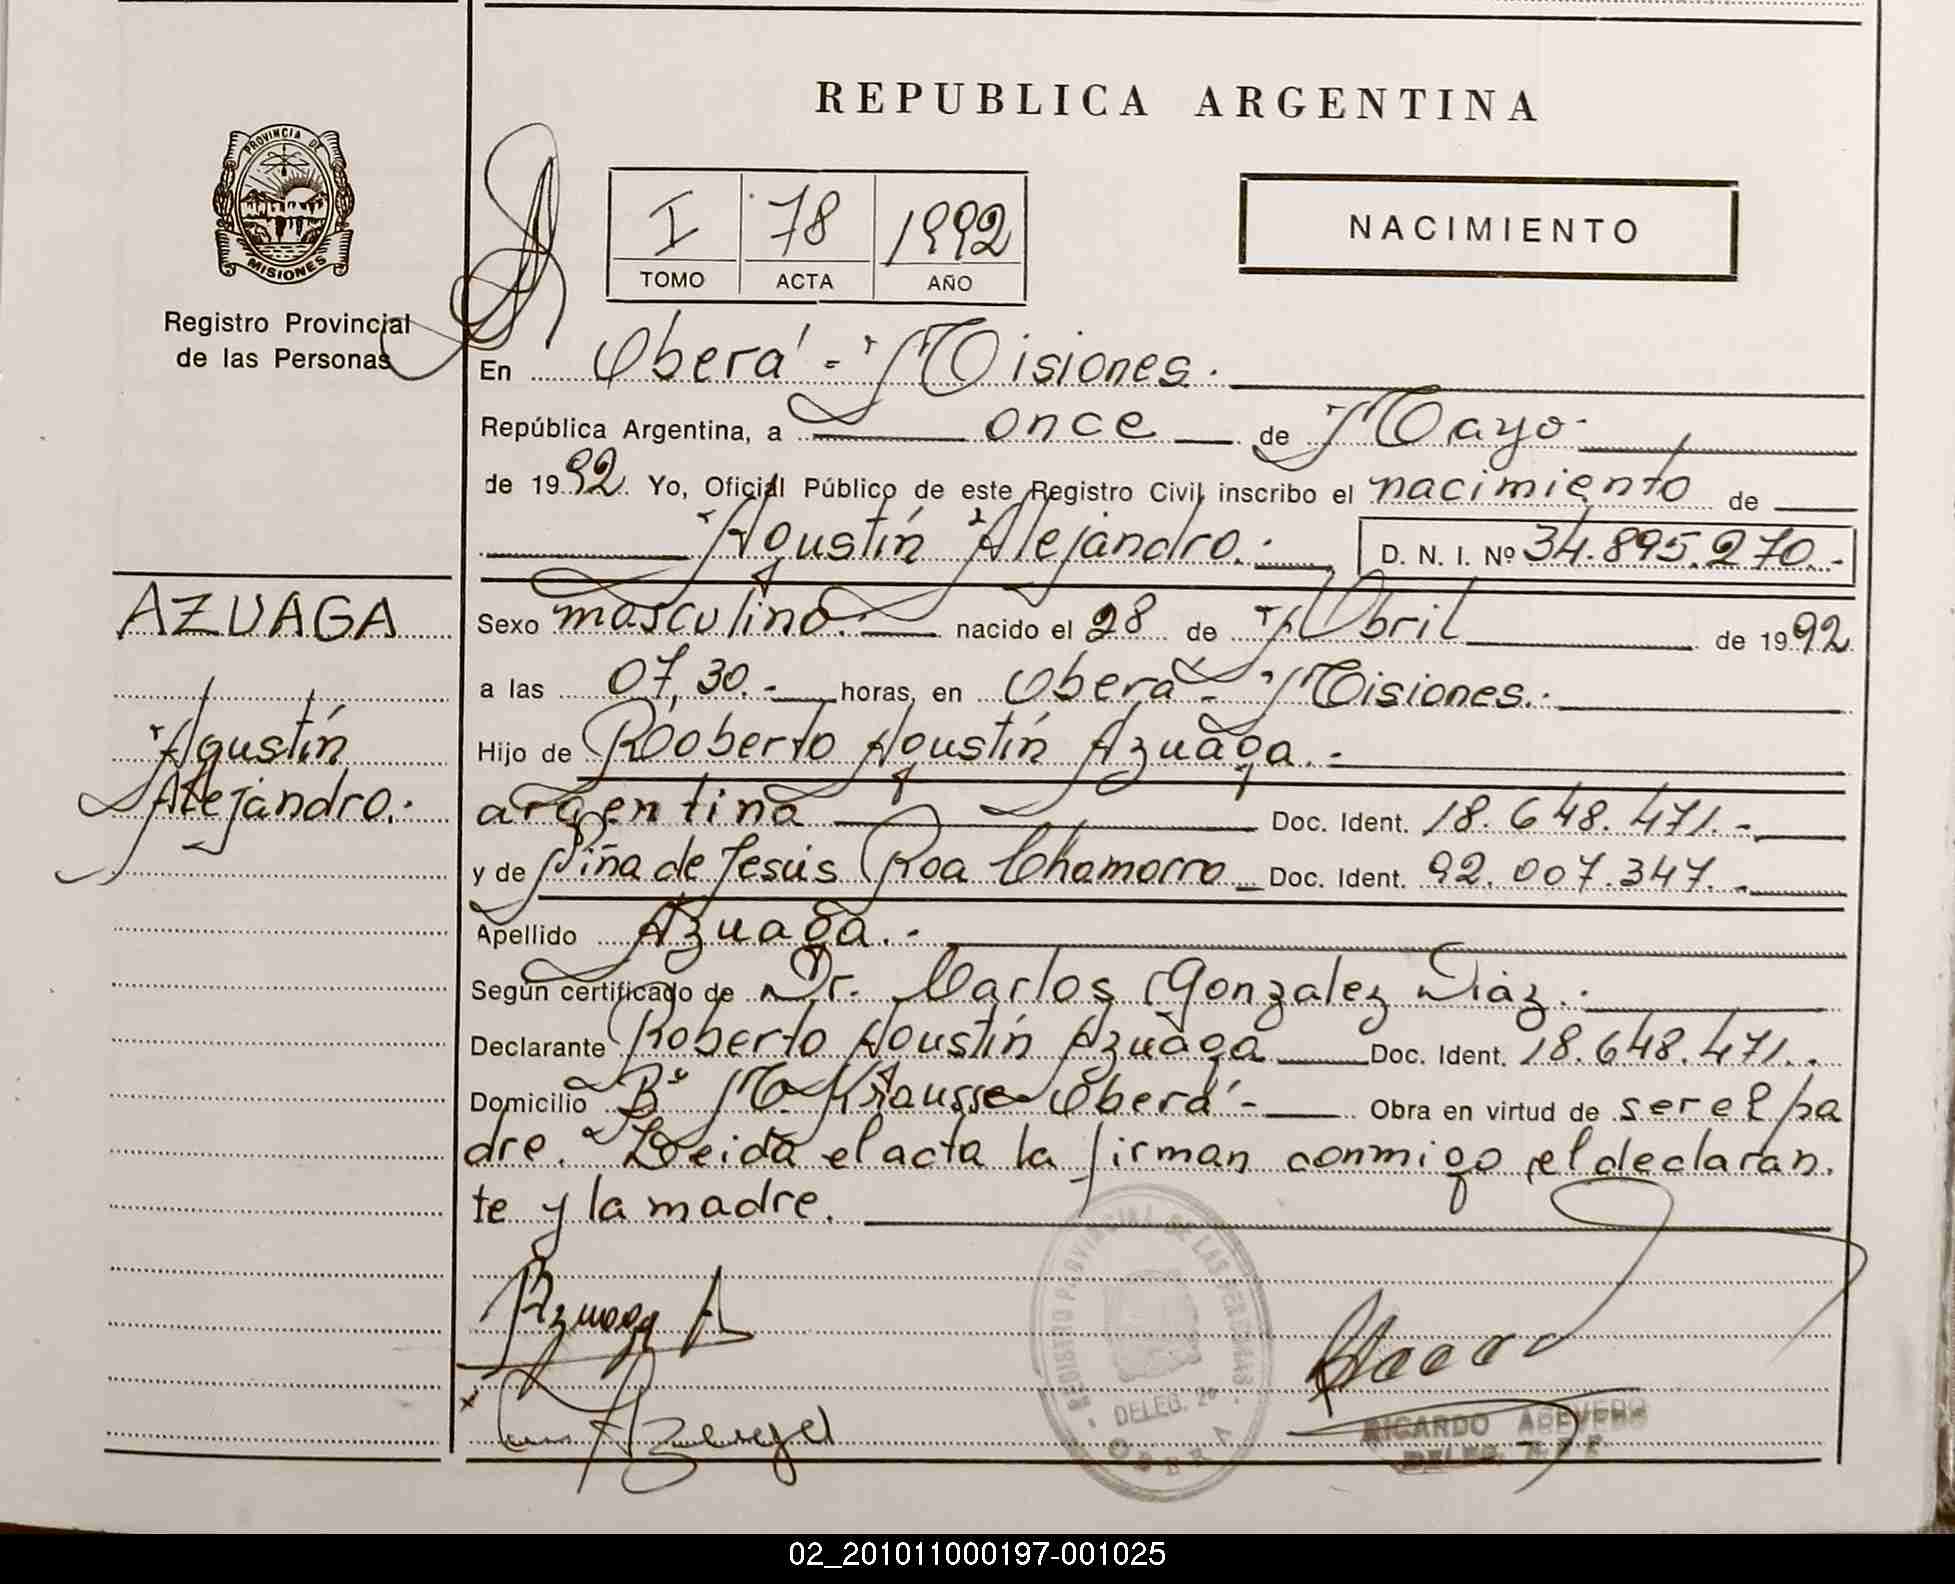 REPUBLICA ARGENTINA
PROVINCIA DE
MISIONES
Registro Provincial
de las Personas
I 78 1992
TOMO ACTA AÑO
NACIMIENTO
En Oberá - Misiones.
República Argentina, a once de Mayo
de 1992. Yo, Oficial Público de este Registro Civil inscribo el nacimiento de
Agustín Alejandro.- D. N. I. Nº 34.895.270.-
AZUAGA
Agustín
Alejandro.-
Sexo masculino. nacido el 28 de Abril de 1992
a las 07,30.- horas, en Oberá - Misiones.-
Hijo de Roberto Agustín Azuaga.-
argentina Doc. Ident. 18.648.471.-
y de Piña de Jesús Roa Chamorro Doc. Ident. 92.007.347.-
Apellido Azuaga.-
Según certificado de Dr. Carlos Gonzalez Diaz.-
Declarante Roberto Agustín Azuaga Doc. Ident. 18.648.471.-
Domicilio Bº M. Krausse Oberá - Obra en virtud de ser el pa
dre. Leida el acta la firman conmigo el declaran
te y la madre.
Azuaga A
REGISTRO PROVINCIAL DE LAS PERSONAS
DELEG.
OBERA
RICARDO ACEVEDO
02_201011000197-001025